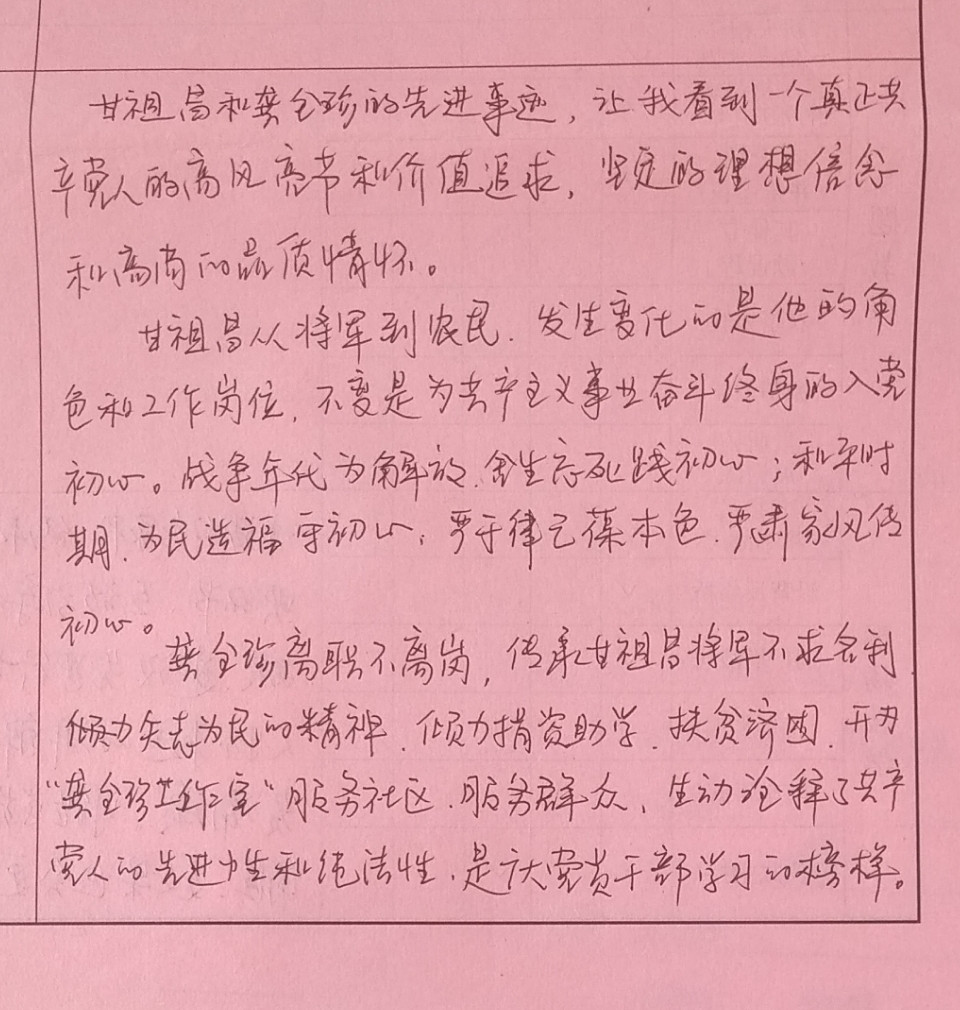 甘祖昌和龚全珍的先进事迹，让我看到一个真正共
产党人的高风亮节和价值追求，坚定的理想信念
和高尚的品质情怀。
甘祖昌从将军到农民，发生变化的是他的角
色和工作岗位，不变是为共产主义事业奋斗终身的入党
初心。战争年代为解放，舍生忘死践初心；和平时
期，为民造福守初心；严于律己葆本色，严肃家风传
初心。
龚全珍离职不离岗，传承甘祖昌将军不求名利
倾力矢志为民的精神，倾力捐资助学，扶贫济困，开办
“龚全珍工作室”服务社区，服务群众，生动诠释了共产
党人的先进性和纯洁性，是广大党员干部学习的榜样。